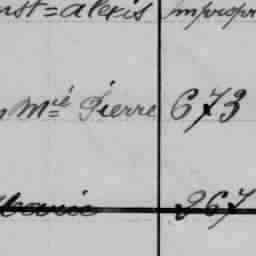 nst=alexis impropr
Mié Pierre 673
267